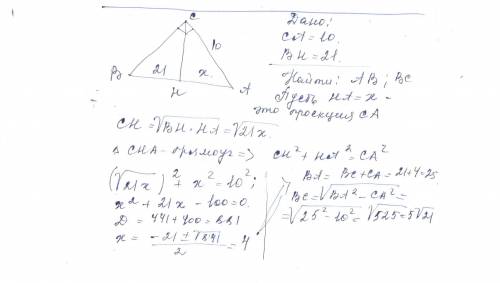 C
10
B 21 x
H A
Дано:
CA = 10.
BH = 21.
Найти: AB; BC
Пусть HA = x -
это проекция CA
CH = √BH · HA = √21x
△ CHA - прямоуг => CH² + HA² = CA²
(√21x)² + x² = 10²;
x² + 21x - 100 = 0.
D = 441 + 400 = 841
x = (-21 ± √841) / 2 = 4
BA = BC + CA = 21 + 4 = 25.
BC = √BA² - CA² =
= √25² - 10² = √525 = 5√21